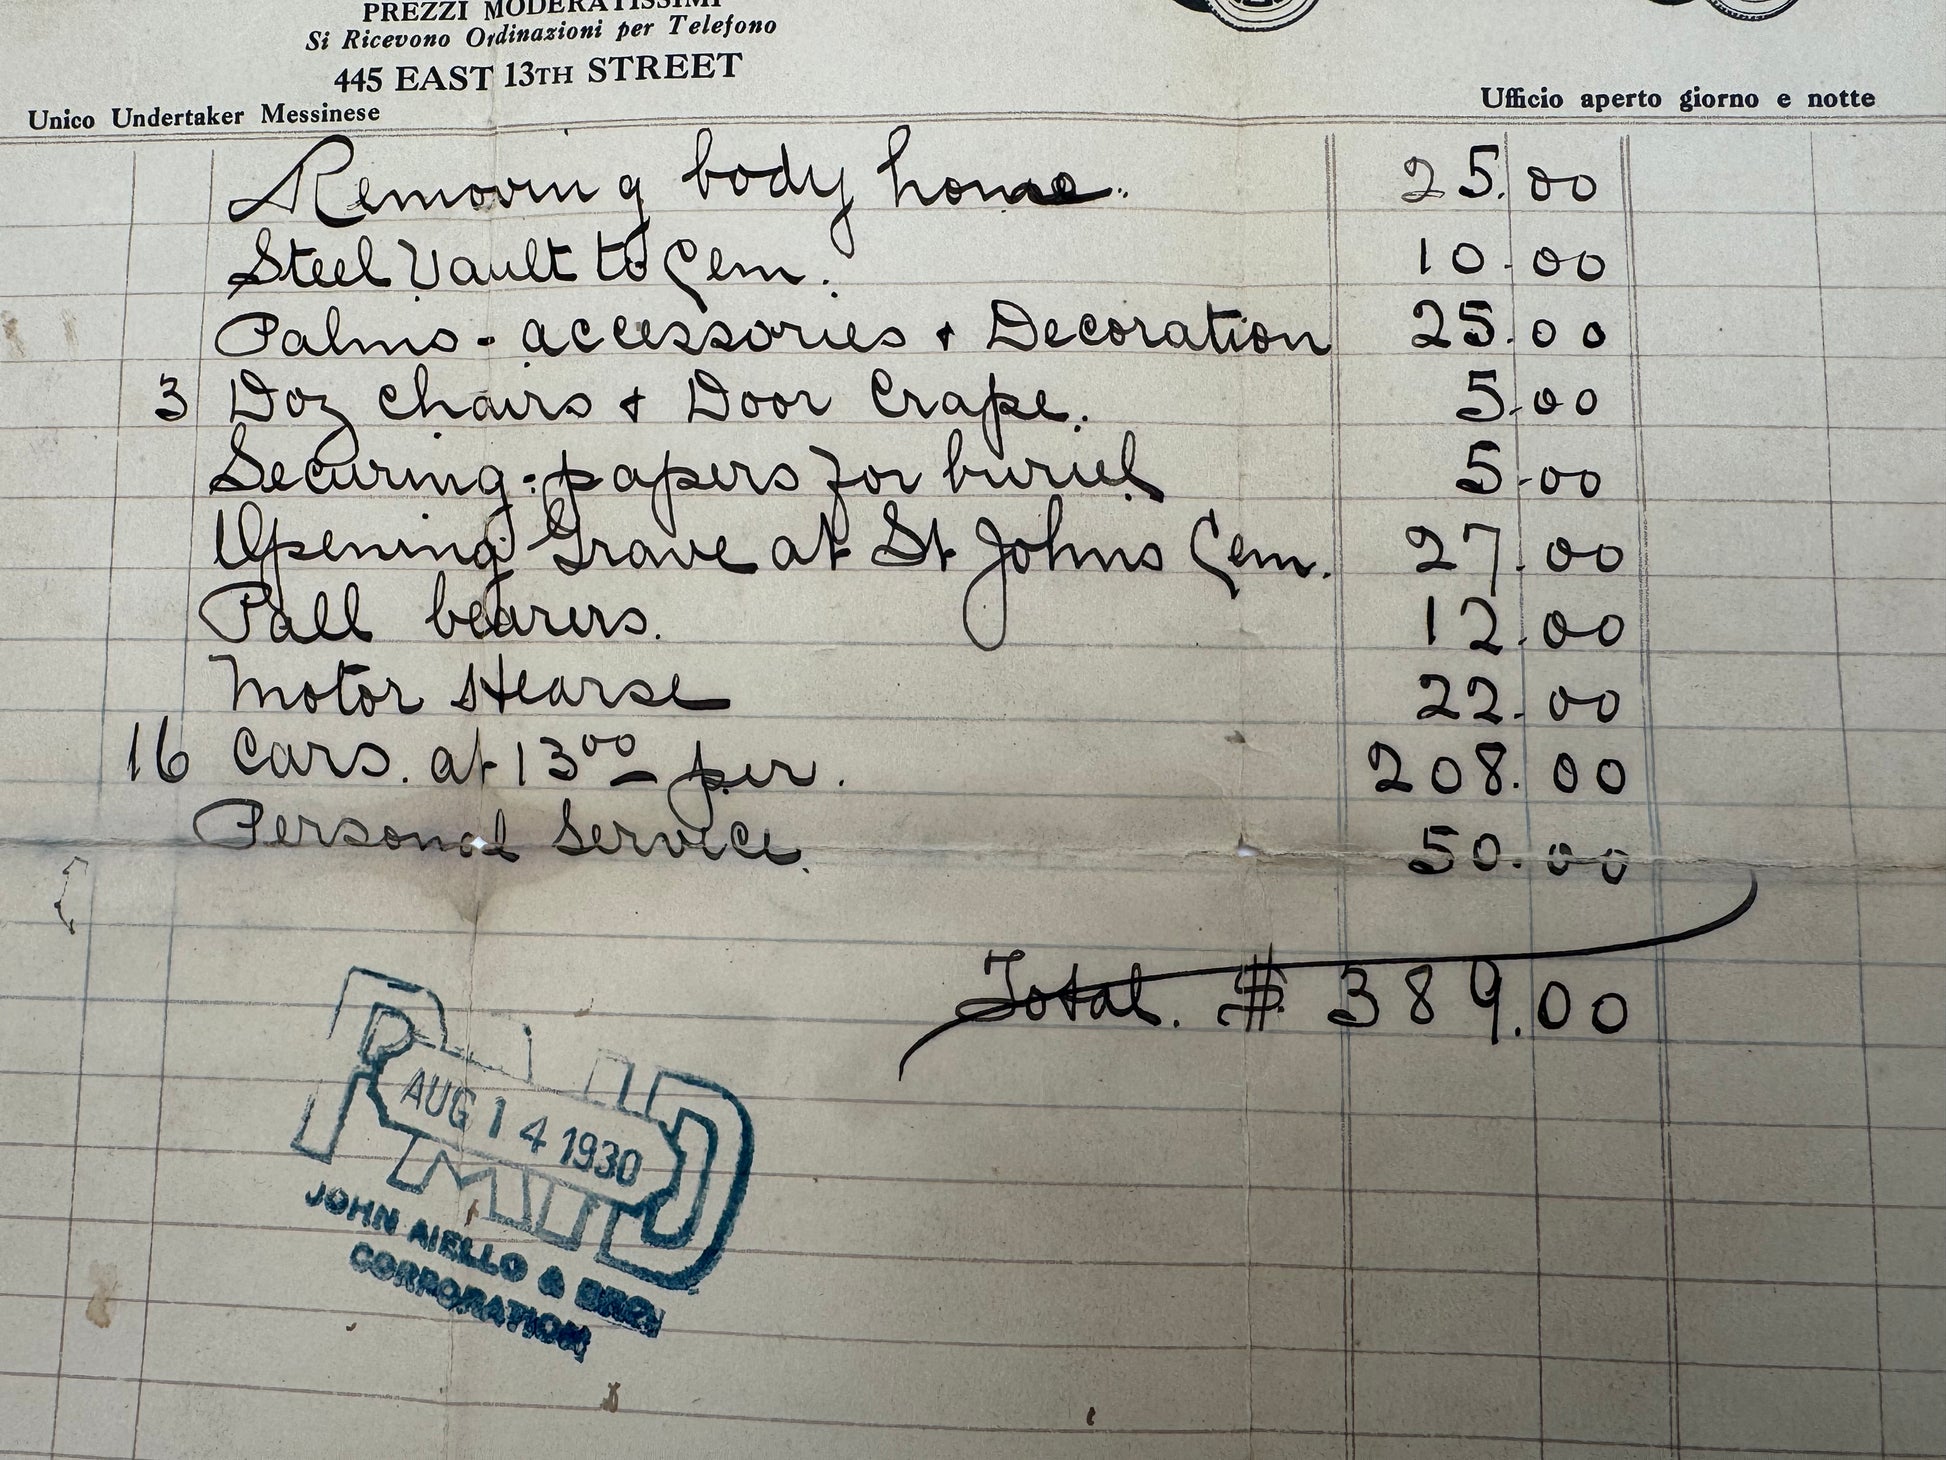 PREZZI MODERATISSIMI
Si Ricevono Ordinazioni per Telefono
445 EAST 13TH STREET
Unico Undertaker Messinese
Ufficio aperto giorno e notte
Removing body home. 25.00
Steel Vault to Cem. 10.00
Palms - accessories & Decoration 25.00
3 Doz chairs & Door Crape. 5.00
Securing - papers for buriel 5.00
Opening Grave at St Johns Cem. 27.00
Pall bearers. 12.00
Motor Hearse 22.00
16 Cars. at 13 00 per. 208.00
Personal Service. 50.00
Total. $ 389.00
PAID
AUG 14 1930
JOHN AIELLO & BRO.
CORPORATION